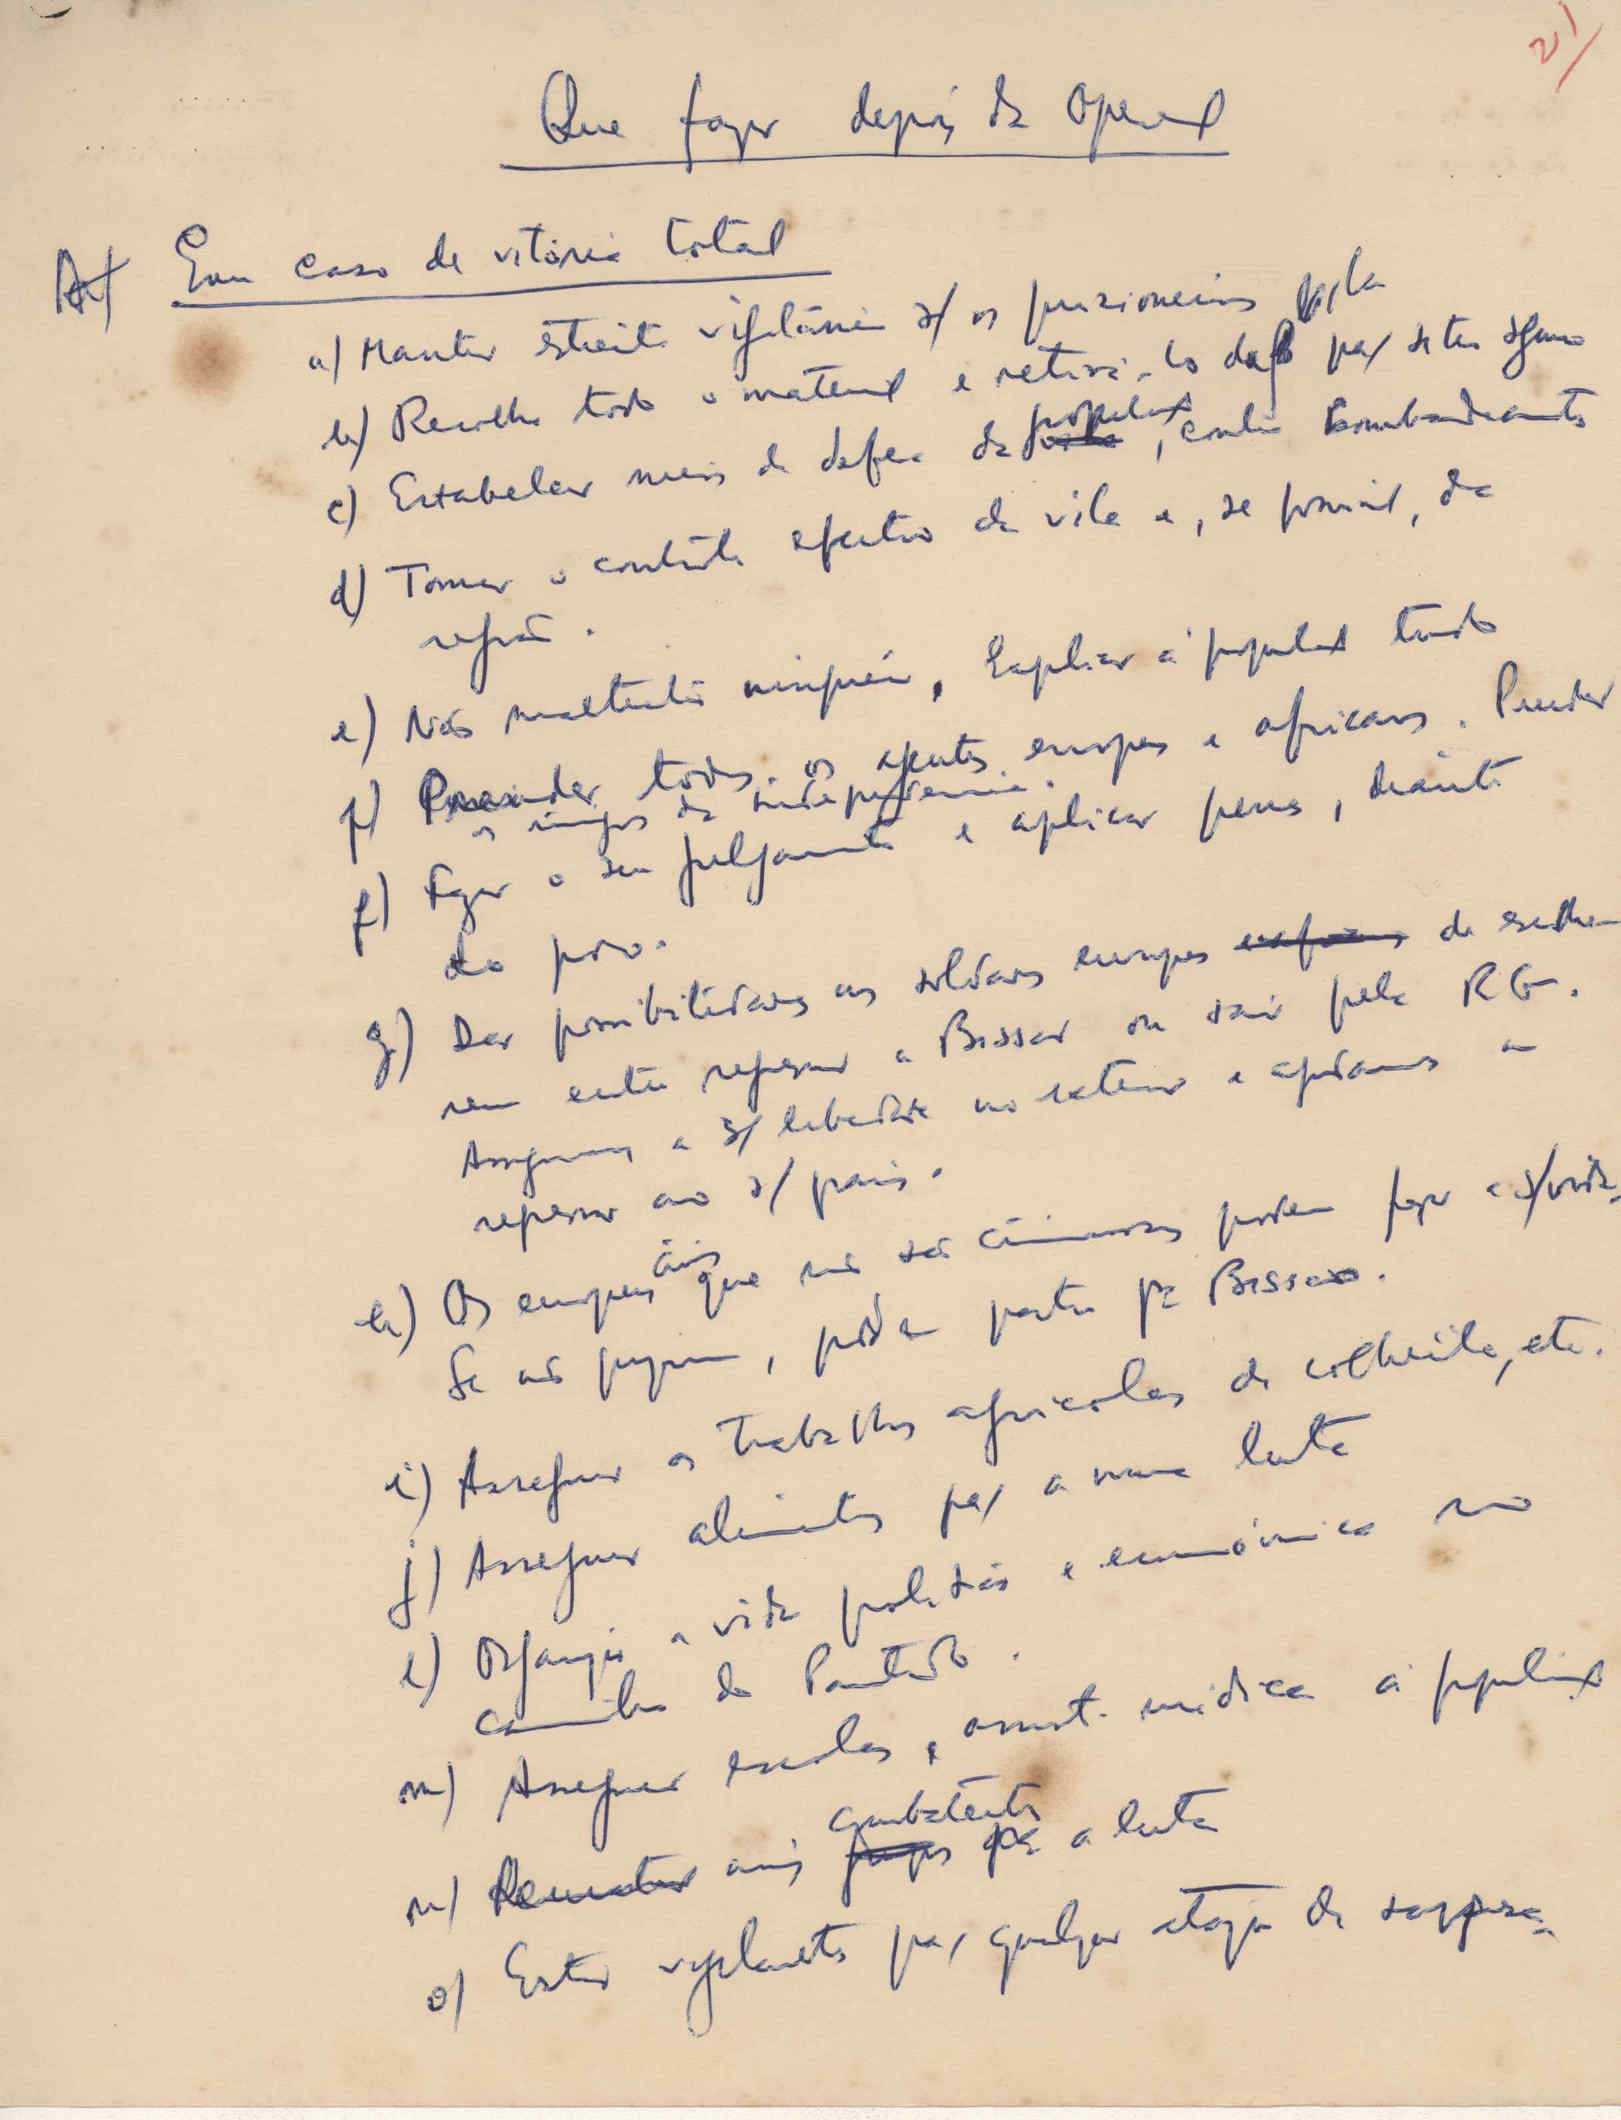 2)
Que fazer depois da operaç
A) Em caso de vitória total
a) Manter estreita vigilância s/ os prisioneiros
b) Recolher todo o material e retirá-lo da vila par sitio seguro
c) Estabelecer meios de defesa da populaç, contra bombardeamentos
d) Tomar o contrôle efectivo da vila e, se possível, da
região.
e) Não maltratar ninguém, Explicar à populaç tudo
f) Prender todos os agentes europeus e africanos. Prender
os inimigos da independência.
f) Fazer o seu julgamento e aplicar penas, diante
do povo.
g) Dar possibilidades aos soldados europeus de escolhe-
rem entre regressar a Bissau ou sair pela RG.
Asseguramos a s/ liberdade no exterior e ajudamos a
regressar ao s/ país.
h) Os europeus civis que não são criminosos podem fazer a s/ vida.
Se não quiserem, podem partir pa Bissao.
i) Assegurar os trabalhos agricolas de colheita, etc.
j) Assegurar alimentos par a nossa luta
l) Organizar a vida política e económica no
caminho do Partido.
m) Assegurar escolas, e assist. médica à populaç
n) Recrutar mais combatentes pa a luta
o) Estar vigilantes par qualquer ataque de surpresa